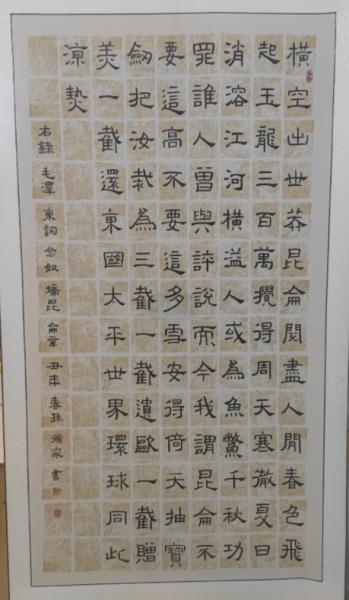 橫空出世莽昆侖閱盡人間春色飛
起玉龍三百萬攪得周天寒徹夏日
消溶江河橫溢人或為魚鱉千秋功
罪誰人曾與評說而今我謂昆侖不
要這高不要這多雪安得倚天抽寶
劒把汝裁為三截一截遺歐一截贈
美一截還東國太平世界環球同此
涼熱
右錄毛澤東詞念奴嬌昆侖辛丑年春孫家書